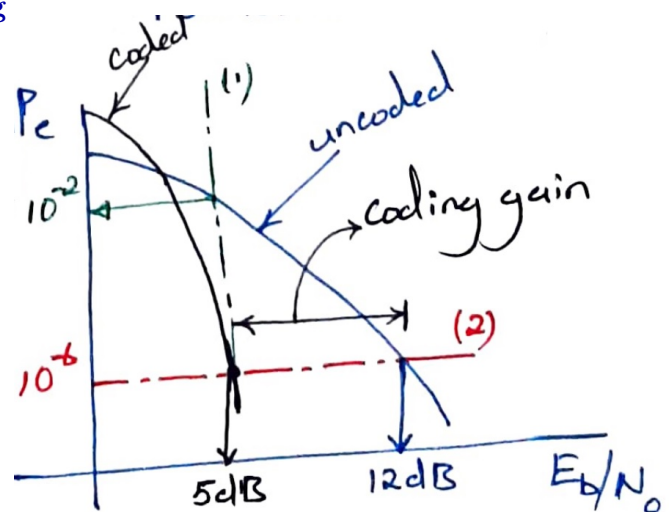 g
coded
(1)
Pe
uncoded
10⁻²
coding gain
(2)
10⁻⁶
5dB
12dB
Eb/No